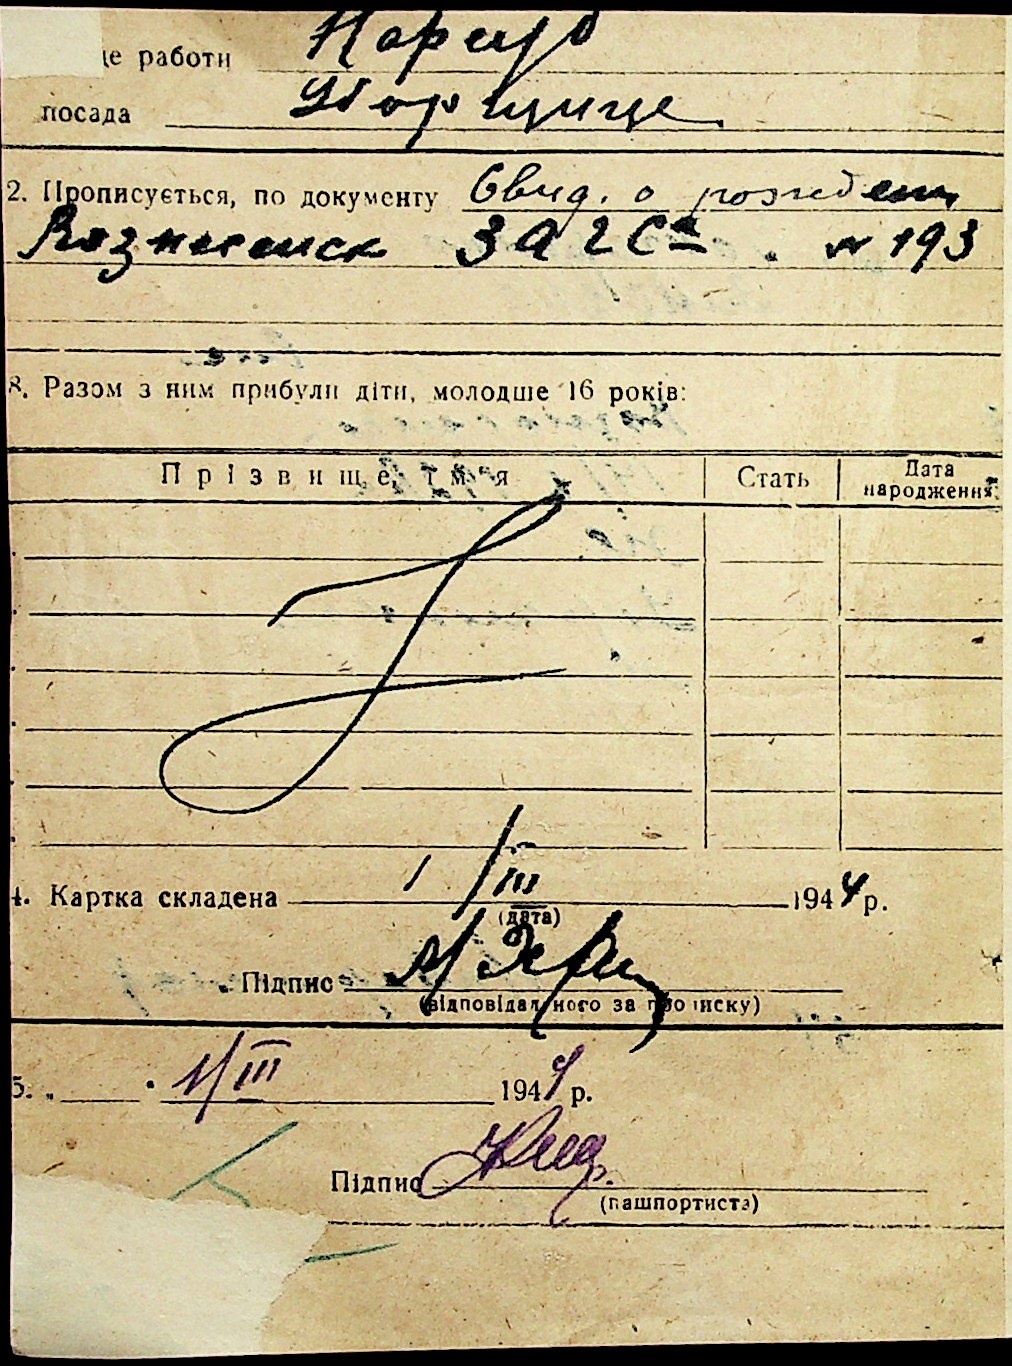 це работи
посада Уборщице
2. Прописується, по документу Свид. о рожден
Вознесенск ЗАГСа № 193
3. Разом з ним прибули діти, молодше 16 років:
Прізвище, ім'я Стать Дата народження
4. Картка складена 1/III 1944 р.
(дата)
Підпис
(відповідального за прописку)
5. 1/III 1944 р.
Підпис
(пашпортиста)